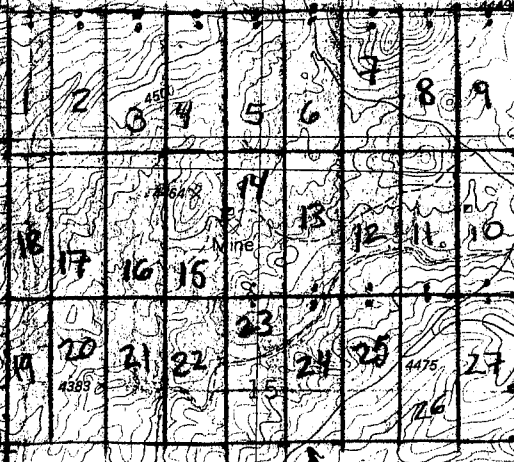 1 2 3 4 5 6 7 8 9
4500
18 17 16 15 14 13 12 11 10
Mine
19 20 21 22 23 24 25 26 27
4383
4475
15